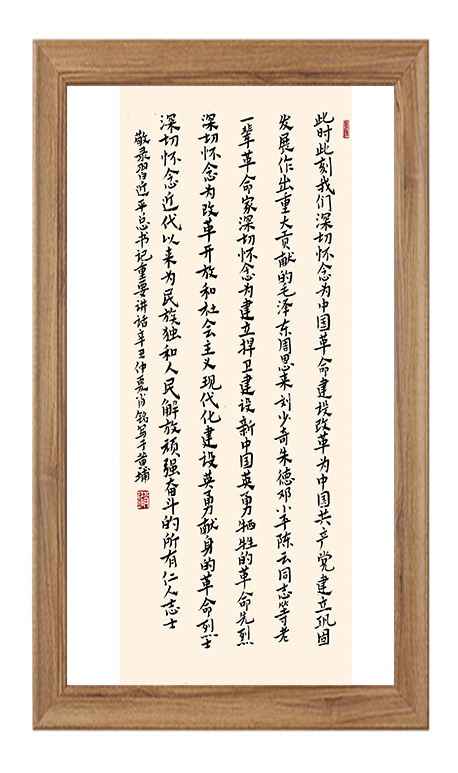 此时此刻我们深切怀念为中国革命建设改革为中国共产党建立巩固
发展作出重大贡献的毛泽东周恩来刘少奇朱德邓小平陈云同志等老
一辈革命家深切怀念为建立捍卫建设新中国英勇牺牲的革命先烈
深切怀念为改革开放和社会主义现代化建设英勇献身的革命烈士
深切怀念近代以来为民族独和人民解放顽强奋斗的所有仁人志士
敬录習近平总书记重要讲话辛丑仲夏肖铭写于黄埔